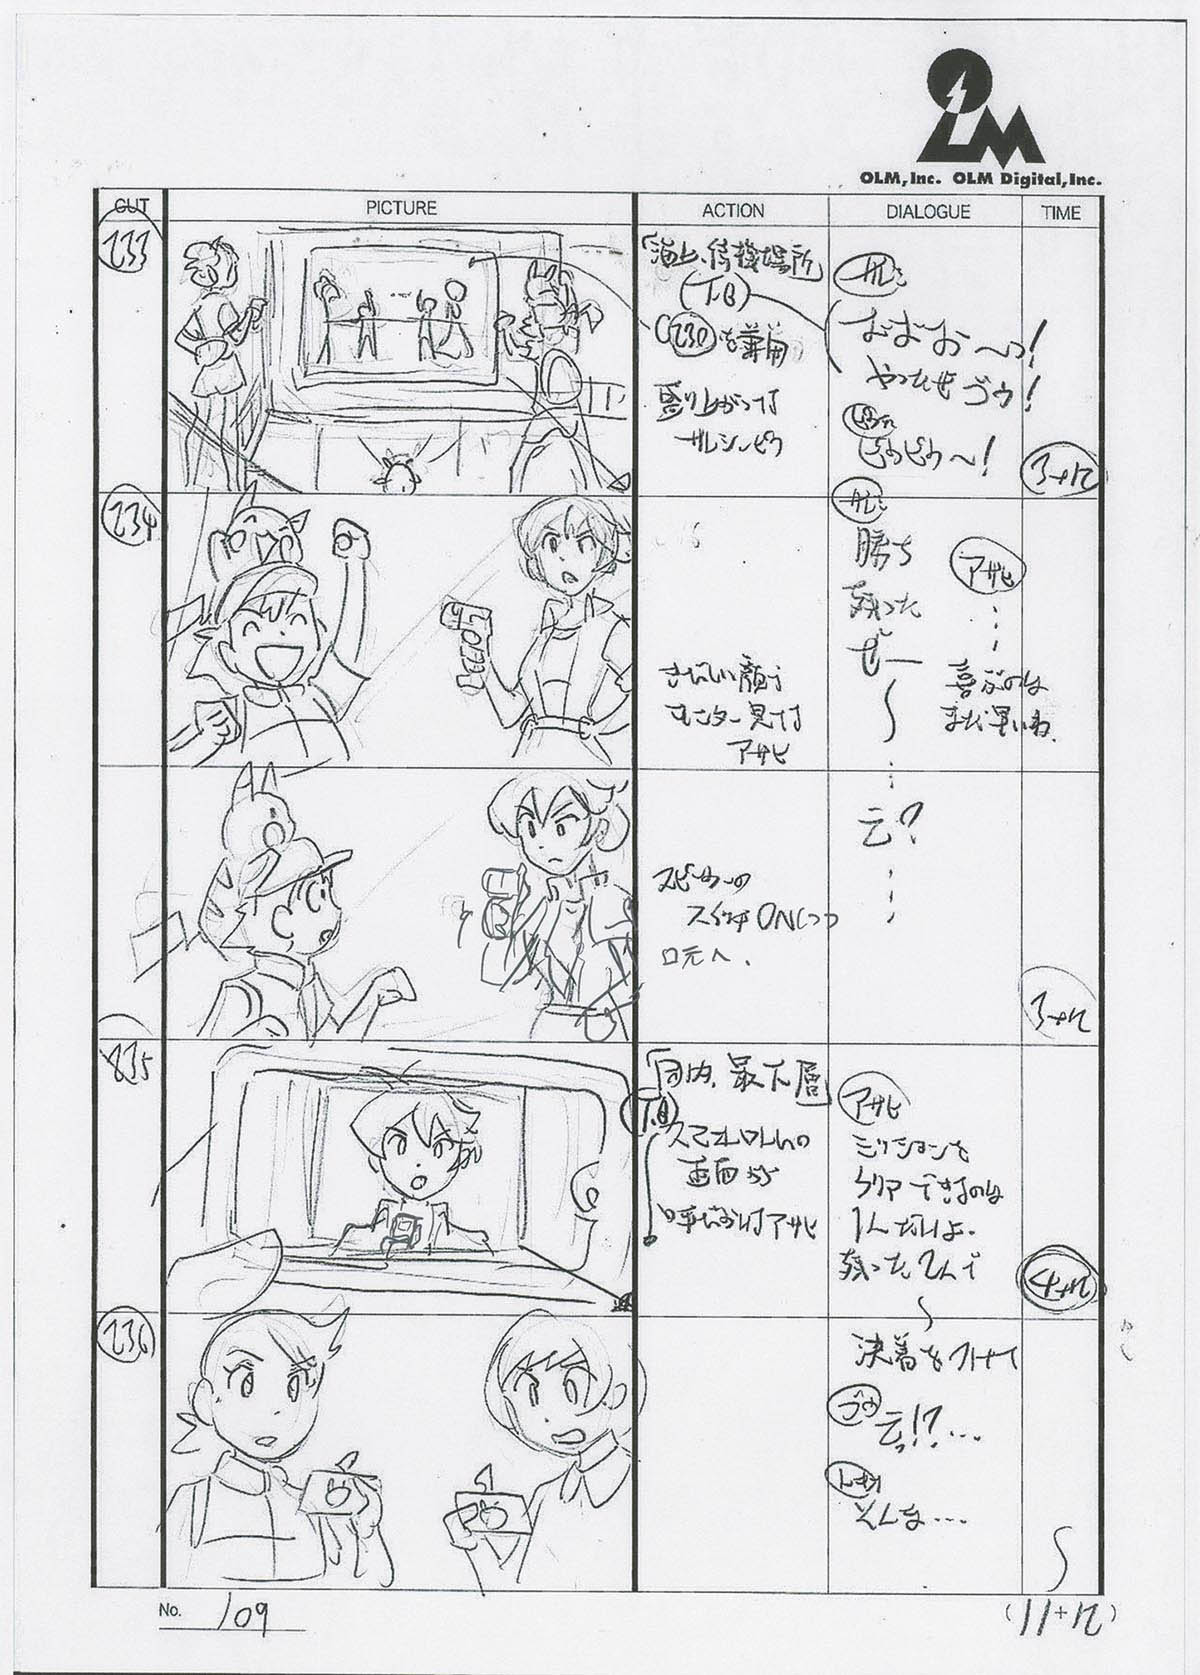 OLM
OLM, Inc. OLM Digital, Inc.
CUT PICTURE ACTION DIALOGUE TIME
233
「海上、待機場所」
(T.B)
C230を兼用
盛り上がってる
サトシ、ピカ
サトシ
おおお〜っ!
やったぜゴウ!
ピカピカ〜!
3+12
234
きびしい顔で
モニター見てる
アサヒ
サトシ
勝ち
残った
ぜー
アサヒ
…
喜ぶのは
まだ早いね
スピーカーの
スイッチONしつつ
口元へ.
え?
3+12
235
最下層」
T.B
画面から
呼びかけるアサヒ
アサヒ
ミッションを
クリアできるのは
1人だけよ.
残った2人で
4+12
236
決着をつけて
ゴウ
えっ!?…
そんな…
No. 109
(11+12)